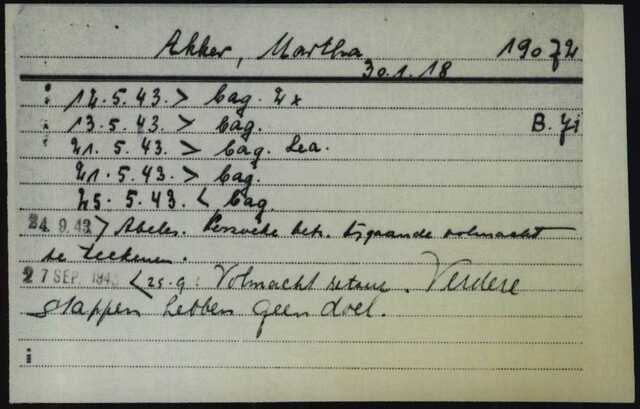 Akker, Martha 19072
30.1.18
12.5.43. > Cag. 2x
13.5.43. > Cag. B.
21. 5.43. > Cag. Lea.
21.5.43. > Cag.
25. 5.43. < Cag.
24. 9. 43 > Abeles. Verzoeke betr. bijgaande volmacht
te teekenen.
27 SEP. 1943 < 25.9. Volmacht retour. Verdere
stappen hebben geen doel.